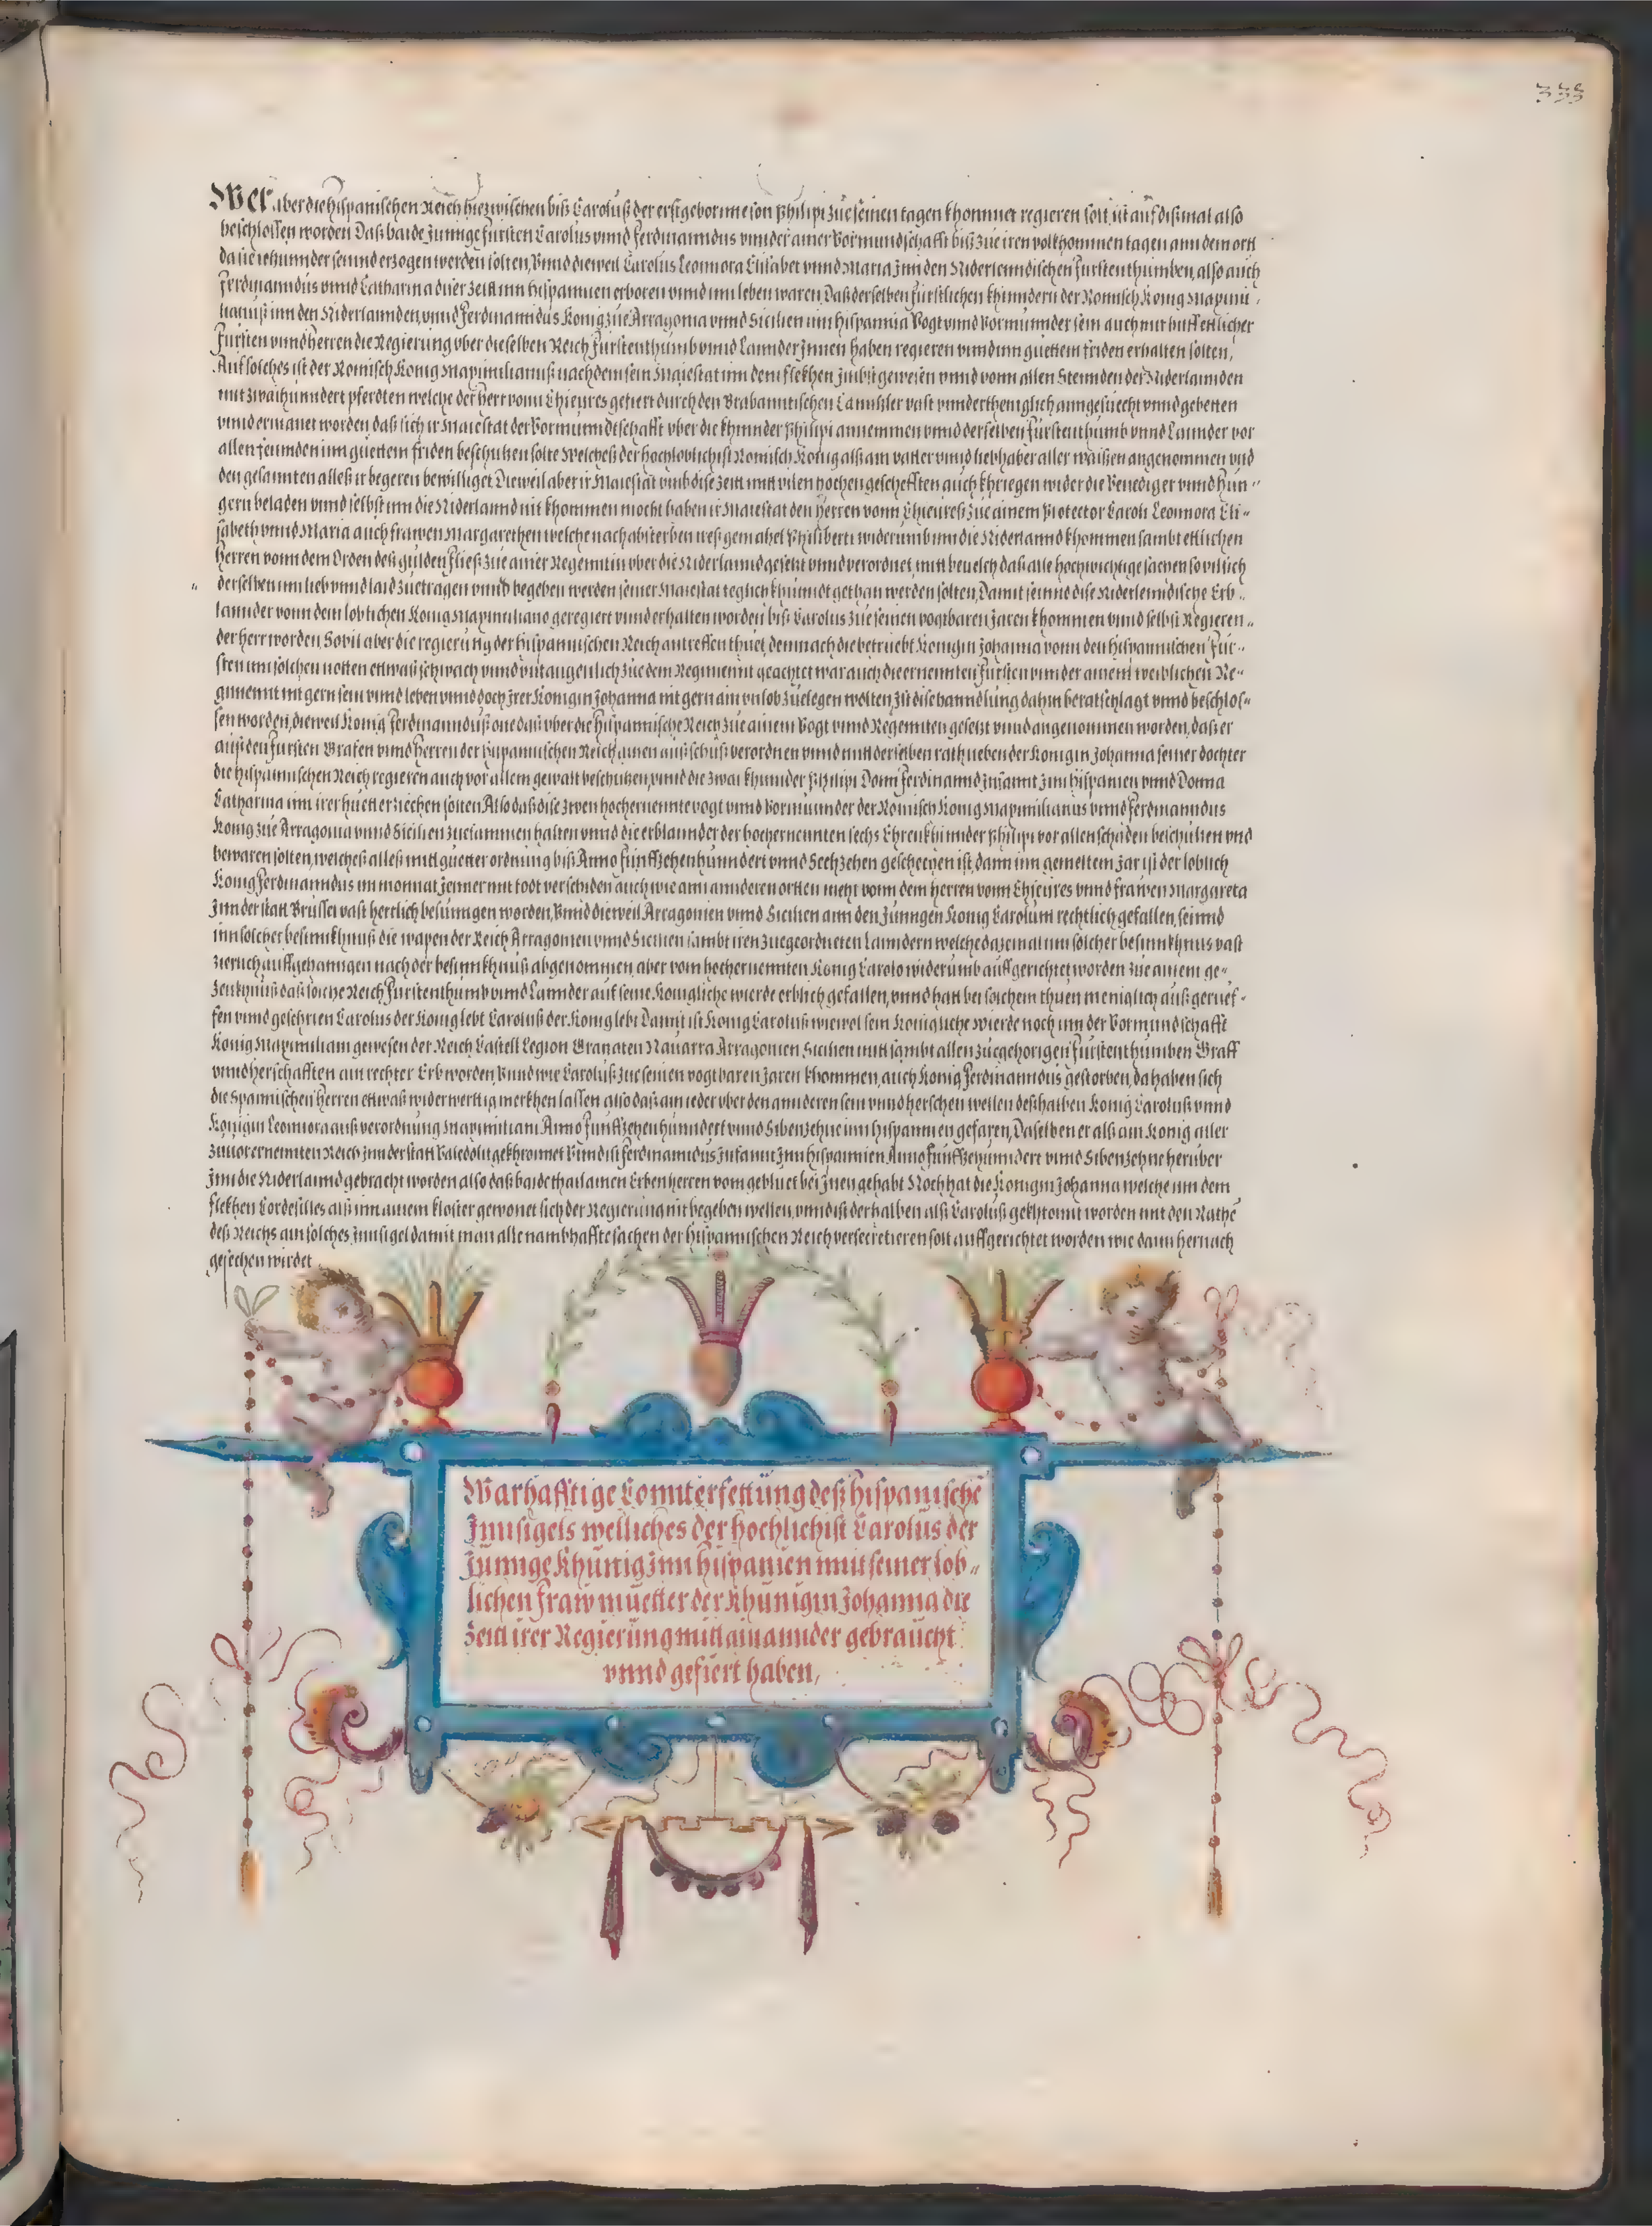 333
Wer aber die hispanischen Reich hiezwischen biß Carolüß der erstgeborinne son Philipi züe seinen tagen khommet regieren solt, ist auf dißmal also
beschlossen worden Daß baide Junnge fürsten Carolus vnnd Ferdinanndus vnnder ainer Vormundschafft biß züe iren volkhommen tagen ann dem ortt
da sie iehunnder seinnd erzogen werden solten, Vnnd dieweil Carolus Leonnora Elisabet vnnd Maria Jnn den Niderlenndischen Fürstenthumben, also auch
Ferdinanndus vnnd Catharina diser zeitt inn hispannien erboren vnnd im leben waren, Daß derselben fürstlichen khinndern der Romisch König Maximi-
lianüß inn den Niderlannden, vnnd Ferdinanndus König züe Arragonia vnnd Sicilien inn hispannia Vogt vnnd Vormünnder sein auch mit hilffentlicher
Fürsten vnnd herren die Regierung vber dieselben Reich Fürstenthumb vnnd Lannder Jnnen haben regieren vnnd inn guettem friden erhalten solten,
Auf solches ist der Romisch König Maximilianüß nach dem sein Maiestat inn dem flekhen gewesen vnnd vonn allen Stennden der Niderlannden
mit zwaihunndert pferdten welche der herr vonn Chieures gefiert durch den Brabanntischen Cannhler vast vnnderthenigklich anngesüecht vnnd gebetten
vnnd ermanet worden, daß sich ir Maiestat der Vormunndtschafft vber die khinnder Philipi annemmen vnnd derselben Fürstenthumb vnnd Lannder vor
allen feinnden inn güettem friden beschutzen solte Welcheß der hochloblichist Romisch König alß ain vatter vnnd liebhaber aller waißen angenommen vnd
den gesannten alleß ir begeren bewilliget, Dieweil aber ir Maiestat vmb dise zeitt mitt vilen hochen geschefften auch khriegen wider die Venediger vnnd Hun-
gern beladen vnnd selbst inn die Niderlannd nit khommen mocht haben ir Maiestat den herren vonn Chieureß züe ainem Protector Caroli Leonnora Eli-
sabeth vnnd Maria auch frawen Margarethen welche nach absterben ireß gemahel Philiberti widerumb inn die Niderlannd khommen sambt ettlichen
herren vonn dem Orden deß gulden Fließ züe ainer Regenntin vber die Niderlannd gesetzt vnnd verordnet, mitt beuelch daß alle hochwichtige sachen so vil sich
derselben inn lieb vnnd laid züetragen vnnd begeben werden seiner Maiestat teglich khundt gethan werden solten, Damit seinnd dise Niderlenndische Erb-
lannder vonn dem loblichen König Maximiliano geregiert vnnd erhalten worden biß Carolus züe seinen vogtbaren Jaren khommen vnnd selbst Regieren-
der herr worden, Sovil aber die regierung der hispannischen Reich antreffen thüet, demnach die betriebt Königin Johanna vonn den hispannischen Für-
sten inn solchen notten ettwaß schwach vnnd vntaugenlich züe dem Regimennt geachtet war auch die ernennten Fürsten vnnder ainem weiblichen Re-
gimennt nit gern sein vnnd leben vnnd doch Jrer Königin Johanna nit gern ain vnlob züelegen wolten, Jst dise hanndlung dahin beratschlagt vnnd beschlos-
sen worden, dieweil König Ferdinanndüß one daß vber die hispannische Reich züe ainem Vogt vnnd Regennten gesetzt vnnd angenommen worden, daß er
auß den Fürsten Grafen vnnd herren der hispannischen Reich ainen außschuß verordnen vnnd mitt derselben rath neben der Königin Johanna seiner dochter
die hispannischen Reich regieren auch vor allem gewalt beschutzen, vnnd die zwai khinnder Philipi Donn Ferdinannd Jnfannt Jnn hispanien vnnd Donna
Catharina inn irer huett erziechen solten, Also daß dise zwen hochernennte vogt vnnd Vormünnder der Romisch König Maximilianus vnnd Ferdinanndus
König züe Arragonia vnnd Sicilien züesammen halten vnnd die erblannder der hochernennten sechs Ehrenkhinnder Philipi vor allen schaden beschützen vnd
bewaren solten, welcheß alleß mitt guetter ordnung biß Anno fünffzehenhunndert vnnd Sechzehen geschechen ist, dann inn gemeltem Jar ist der loblich
König Ferdinanndus im monnat Jenner mit todt verschiden auch wie ann annderen ortten mehr vonn dem herren vonn Chieures vnnd frawen Margareta
Jnn der statt Brüssel vast herrlich besünngen worden, Vnnd dieweil Arragonien vnnd Sicilien ann den Junngen König Carolum rechtlich gefallen, seinnd
inn solcher besinnkhnuß die wapen der Reich Arragonien vnnd Sicilien sambt iren züegeordneten Lanndern welche dazemal inn solcher besinnkhnus vast
zierlich auffgehanngen nach der besinnkhnüß abgenommen, aber vom hochernennten König Carolo widerumb auffgerichtet worden züe ainem ge-
zeükhnüß daß solche Reich Fürstenthumb vnnd Lannder auf seine Königliche wierde erblich gefallen, vnnd hatt bei solchem thuen meniglich auß gerüef-
fen vnnd geschrien Carolus der König lebt Carolüß der König lebt Damit ist König Carolüß wiewol sein Königliche Wierde noch inn der Vormundschafft
König Maximiliani gewesen der Reich Castell Legion Granaten Nauarra Arragonien Sicilien mitt sambt allen züegehorigen Fürstenthumben Graff
vnnd herschafften ain rechter Erb worden, Vnnd wie Carolüß züe seinen vogtbaren Jaren khommen, auch König Ferdinanndus gestorben, da haben sich
die Spannischen herren ettwaß widerwerttig merkhen lassen also daß ain ieder vber den annderen sein vnnd herschen wellen deßhalben König Carolüß vnnd
Königin Leonnora auß verordnung Maximiliani Anno fünffzehenhunndert vnnd Sibenzehne inn hispannien gefaren, Daselben er alß ain König aller
züuor ernennten Reich Jnn der statt Valedolit gekhronnet Vnnd ist Ferdinanndus Jnfannt Jnn hispannien Anno fünffzehunndert vnnd Sibenzehne herüber
Jnn die Niderlannd gebracht worden also daß baide thail ainen Erbenherren vom gebluet bei Jnen gehabt Noch hat die Königin Johanna welche inn dem
flekhen Tordesilles alß inn ainem kloster gewonet sich der Regierung nit begeben wellen, vnnd ist derhalben alß Carolüß gekhront worden mit den Rathe
deß Reichs ain solches Jnnsigel damit man alle nambhaffte sachen der hispannischen Reich versecretieren solt auffgerichtet worden wie dann hernach
gesechen wirdet
Warhafftige Connterfettüng deß hispanische
Jnnsigels welliches der hochlichist Carolus der
Junnge Khünig Jnn hispanien mit seiner lob-
lichen Fraw müetter der Khünigin Johanna die
Zeitt irer Regierüng mitt ainannder gebraücht
vnnd gefiert haben,